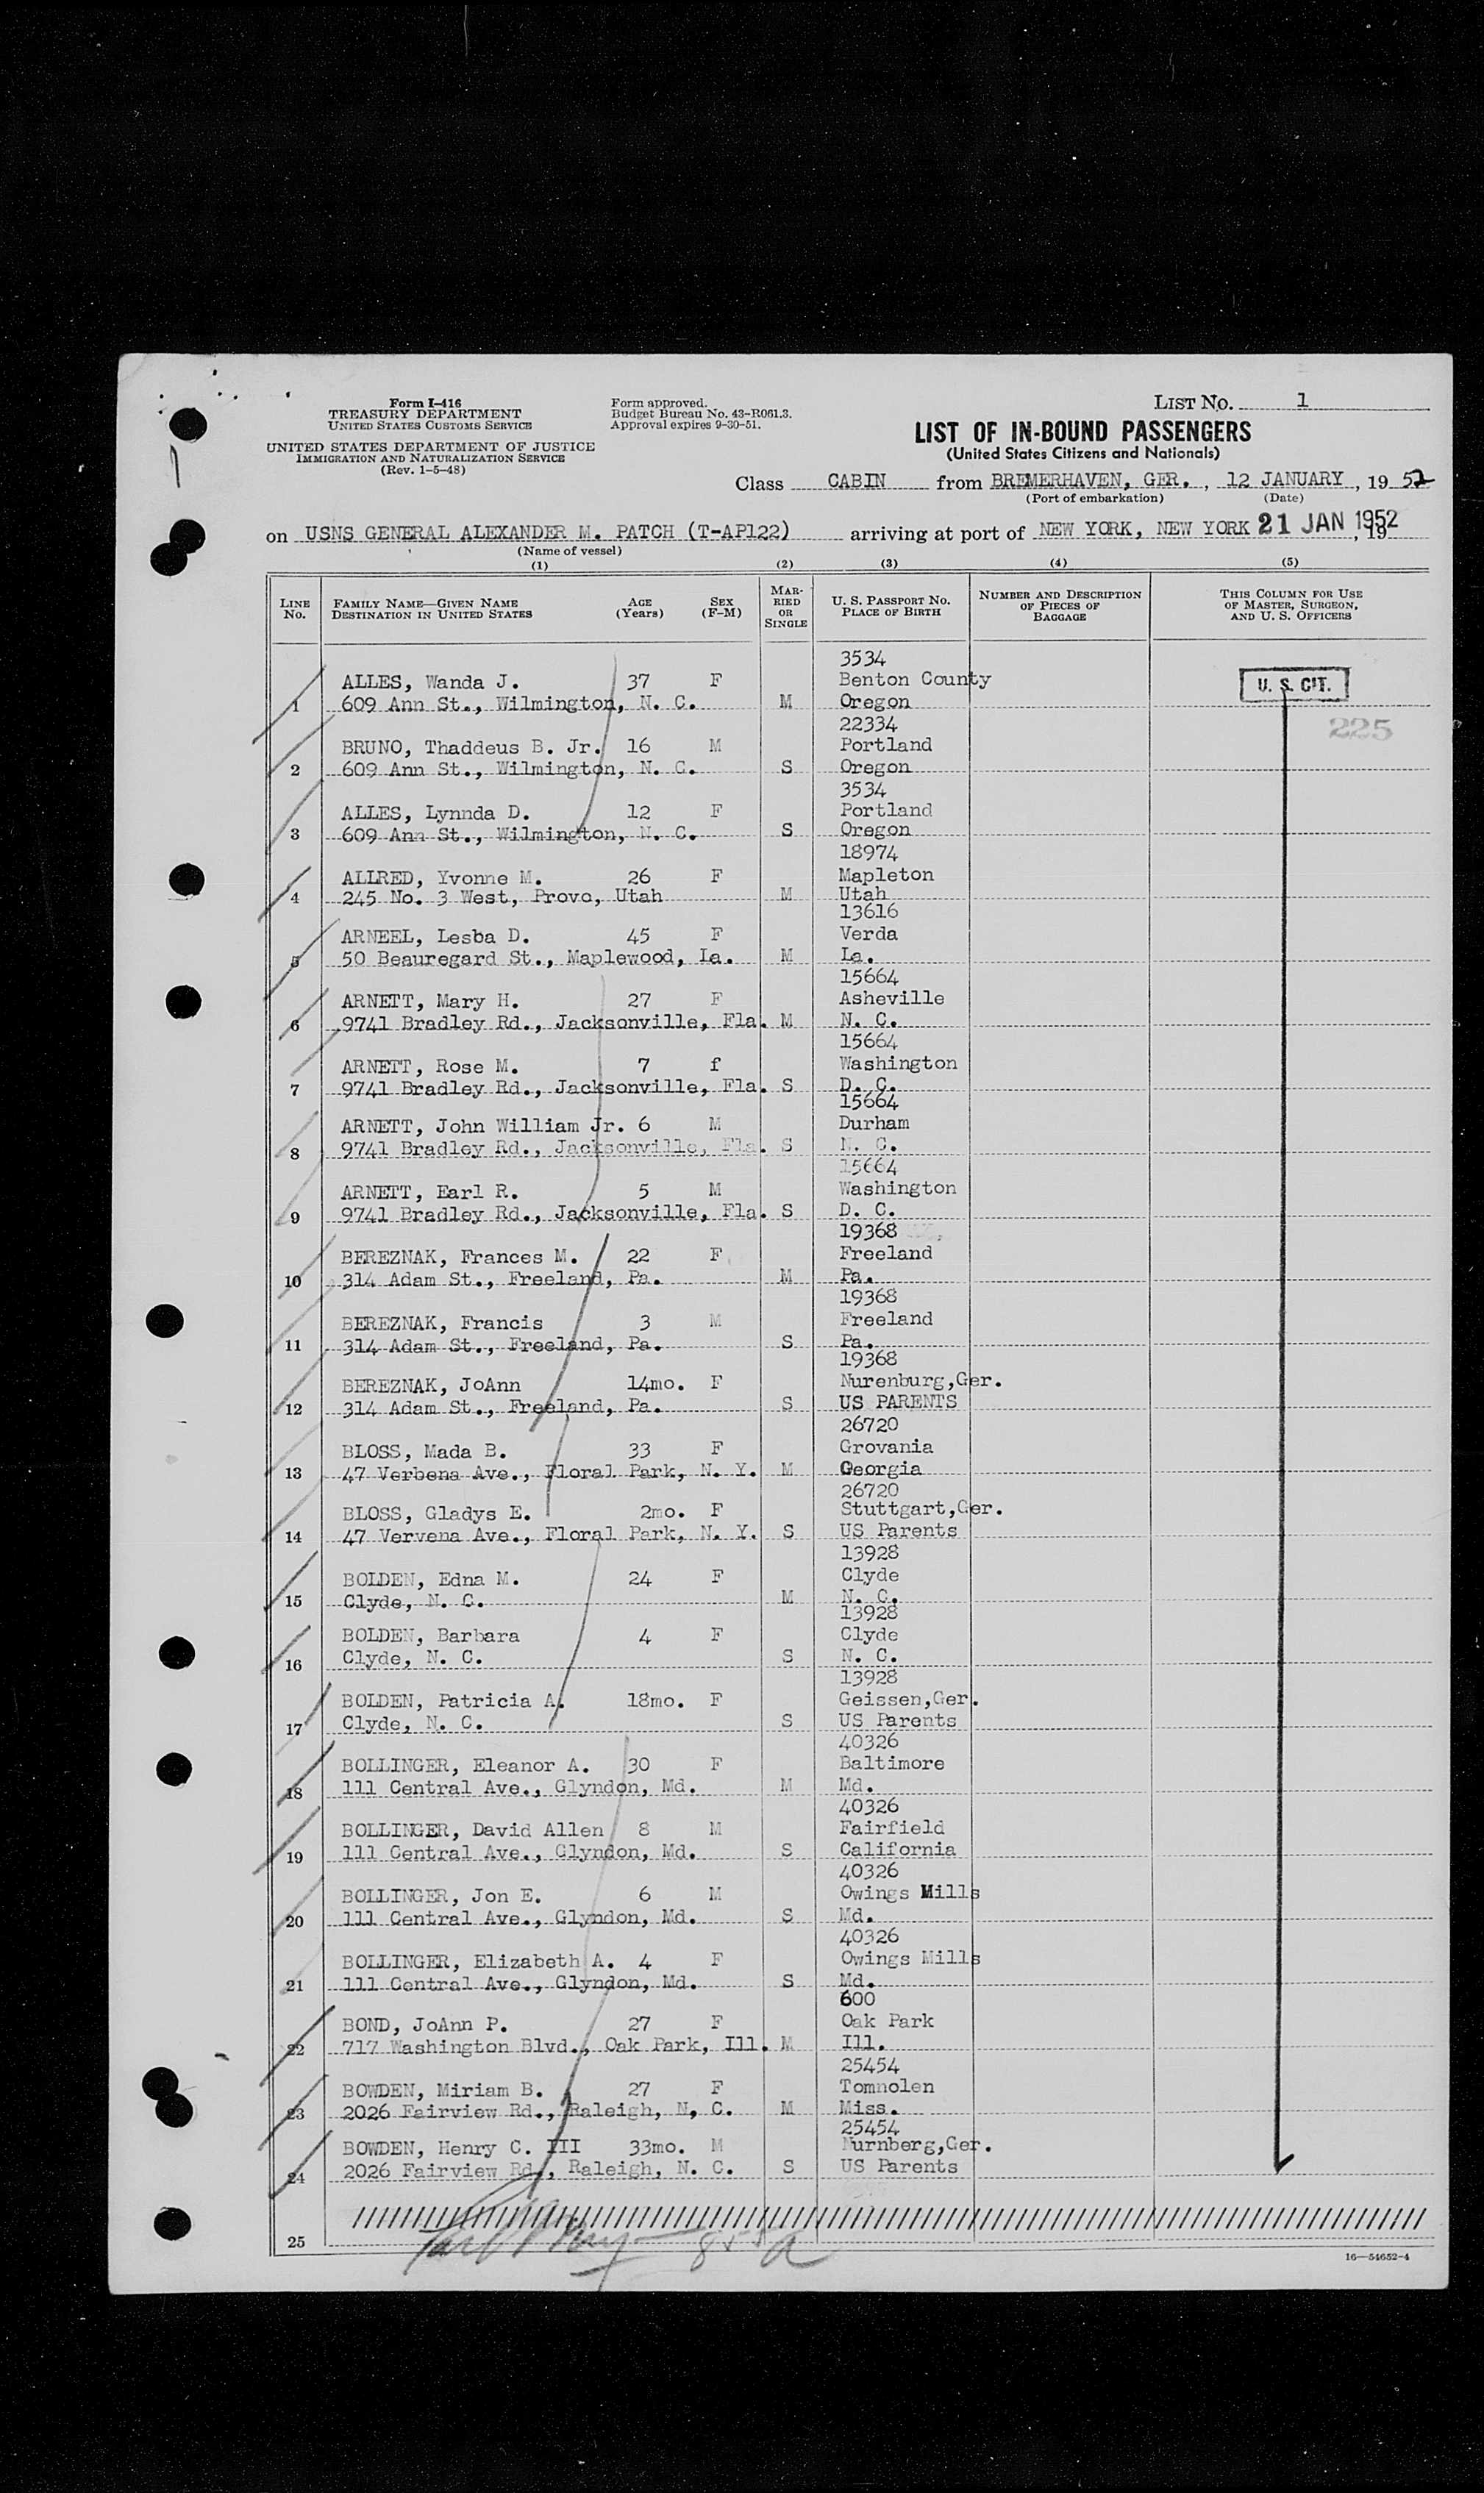 Form I-416
TREASURY DEPARTMENT
UNITED STATES CUSTOMS SERVICE
UNITED STATES DEPARTMENT OF JUSTICE
IMMIGRATION AND NATURALIZATION SERVICE
(Rev. 1-5-48)
Form approved.
Budget Bureau No. 43-R061.3.
Approval expires 9-30-51.
LIST NO. 1
LIST OF IN-BOUND PASSENGERS
(United States Citizens and Nationals)
Class CABIN from BREMERHAVEN, GER. , 12 JANUARY , 19 52
(Port of embarkation) (Date)
on USNS GENERAL ALEXANDER M. PATCH (T-AP122) arriving at port of NEW YORK, NEW YORK 21 JAN 1952 , 19
(Name of vessel)
(1) (2) (3) (4) (5)
LINE No. FAMILY NAME—GIVEN NAME DESTINATION IN UNITED STATES AGE (Years) SEX (F-M) MARRIED OR SINGLE U. S. PASSPORT NO. PLACE OF BIRTH NUMBER AND DESCRIPTION OF PIECES OF BAGGAGE THIS COLUMN FOR USE OF MASTER, SURGEON, AND U. S. OFFICERS
3534
ALLES, Wanda J. 37 F Benton County U. S. CIT.
1 609 Ann St., Wilmington, N. C. M Oregon
22334 225
BRUNO, Thaddeus B. Jr. 16 M Portland
2 609 Ann St., Wilmington, N. C. S Oregon
3534
ALLES, Lynnda D. 12 F Portland
3 609 Ann St., Wilmington, N. C. S Oregon
18974
ALLRED, Yvonne M. 26 F Mapleton
4 245 No. 3 West, Provo, Utah M Utah
13616
ARNEEL, Lesba D. 45 F Verda
5 50 Beauregard St., Maplewood, La. M La.
15664
ARNETT, Mary H. 27 F Asheville
6 9741 Bradley Rd., Jacksonville, Fla. M N. C.
15664
ARNETT, Rose M. 7 f Washington
7 9741 Bradley Rd., Jacksonville, Fla. S D. C.
15664
ARNETT, John William Jr. 6 M Durham
8 9741 Bradley Rd., Jacksonville, Fla. S N. C.
15664
ARNETT, Earl R. 5 M Washington
9 9741 Bradley Rd., Jacksonville, Fla. S D. C.
19368
BEREZNAK, Frances M. 22 F Freeland
10 314 Adam St., Freeland, Pa. M Pa.
19368
BEREZNAK, Francis 3 M Freeland
11 314 Adam St., Freeland, Pa. S Pa.
19368
BEREZNAK, JoAnn 14mo. F Nurenburg,Ger.
12 314 Adam St., Freeland, Pa. S US PARENTS
26720
BLOSS, Mada B. 33 F Grovania
13 47 Verbena Ave., Floral Park, N. Y. M Georgia
26720
BLOSS, Gladys E. 2mo. F Stuttgart,Ger.
14 47 Vervena Ave., Floral Park, N. Y. S US Parents
13928
BOLDEN, Edna M. 24 F Clyde
15 Clyde, N. C. M N. C.
13928
BOLDEN, Barbara 4 F Clyde
16 Clyde, N. C. S N. C.
13928
BOLDEN, Patricia A. 18mo. F Geissen,Ger.
17 Clyde, N. C. S US Parents
40326
BOLLINGER, Eleanor A. 30 F Baltimore
18 111 Central Ave., Glyndon, Md. M Md.
40326
BOLLINGER, David Allen 8 M Fairfield
19 111 Central Ave., Glyndon, Md. S California
40326
BOLLINGER, Jon E. 6 M Owings Mills
20 111 Central Ave., Glyndon, Md. S Md.
40326
BOLLINGER, Elizabeth A. 4 F Owings Mills
21 111 Central Ave., Glyndon, Md. S Md.
600
BOND, JoAnn P. 27 F Oak Park
22 717 Washington Blvd., Oak Park, Ill. M Ill.
25454
BOWDEN, Miriam B. 27 F Tomnolen
23 2026 Fairview Rd., Raleigh, N, C. M Miss.
25454
BOWDEN, Henry C. III 33mo. M Nurnberg,Ger.
24 2026 Fairview Rd., Raleigh, N. C. S US Parents
25
16—54652-4